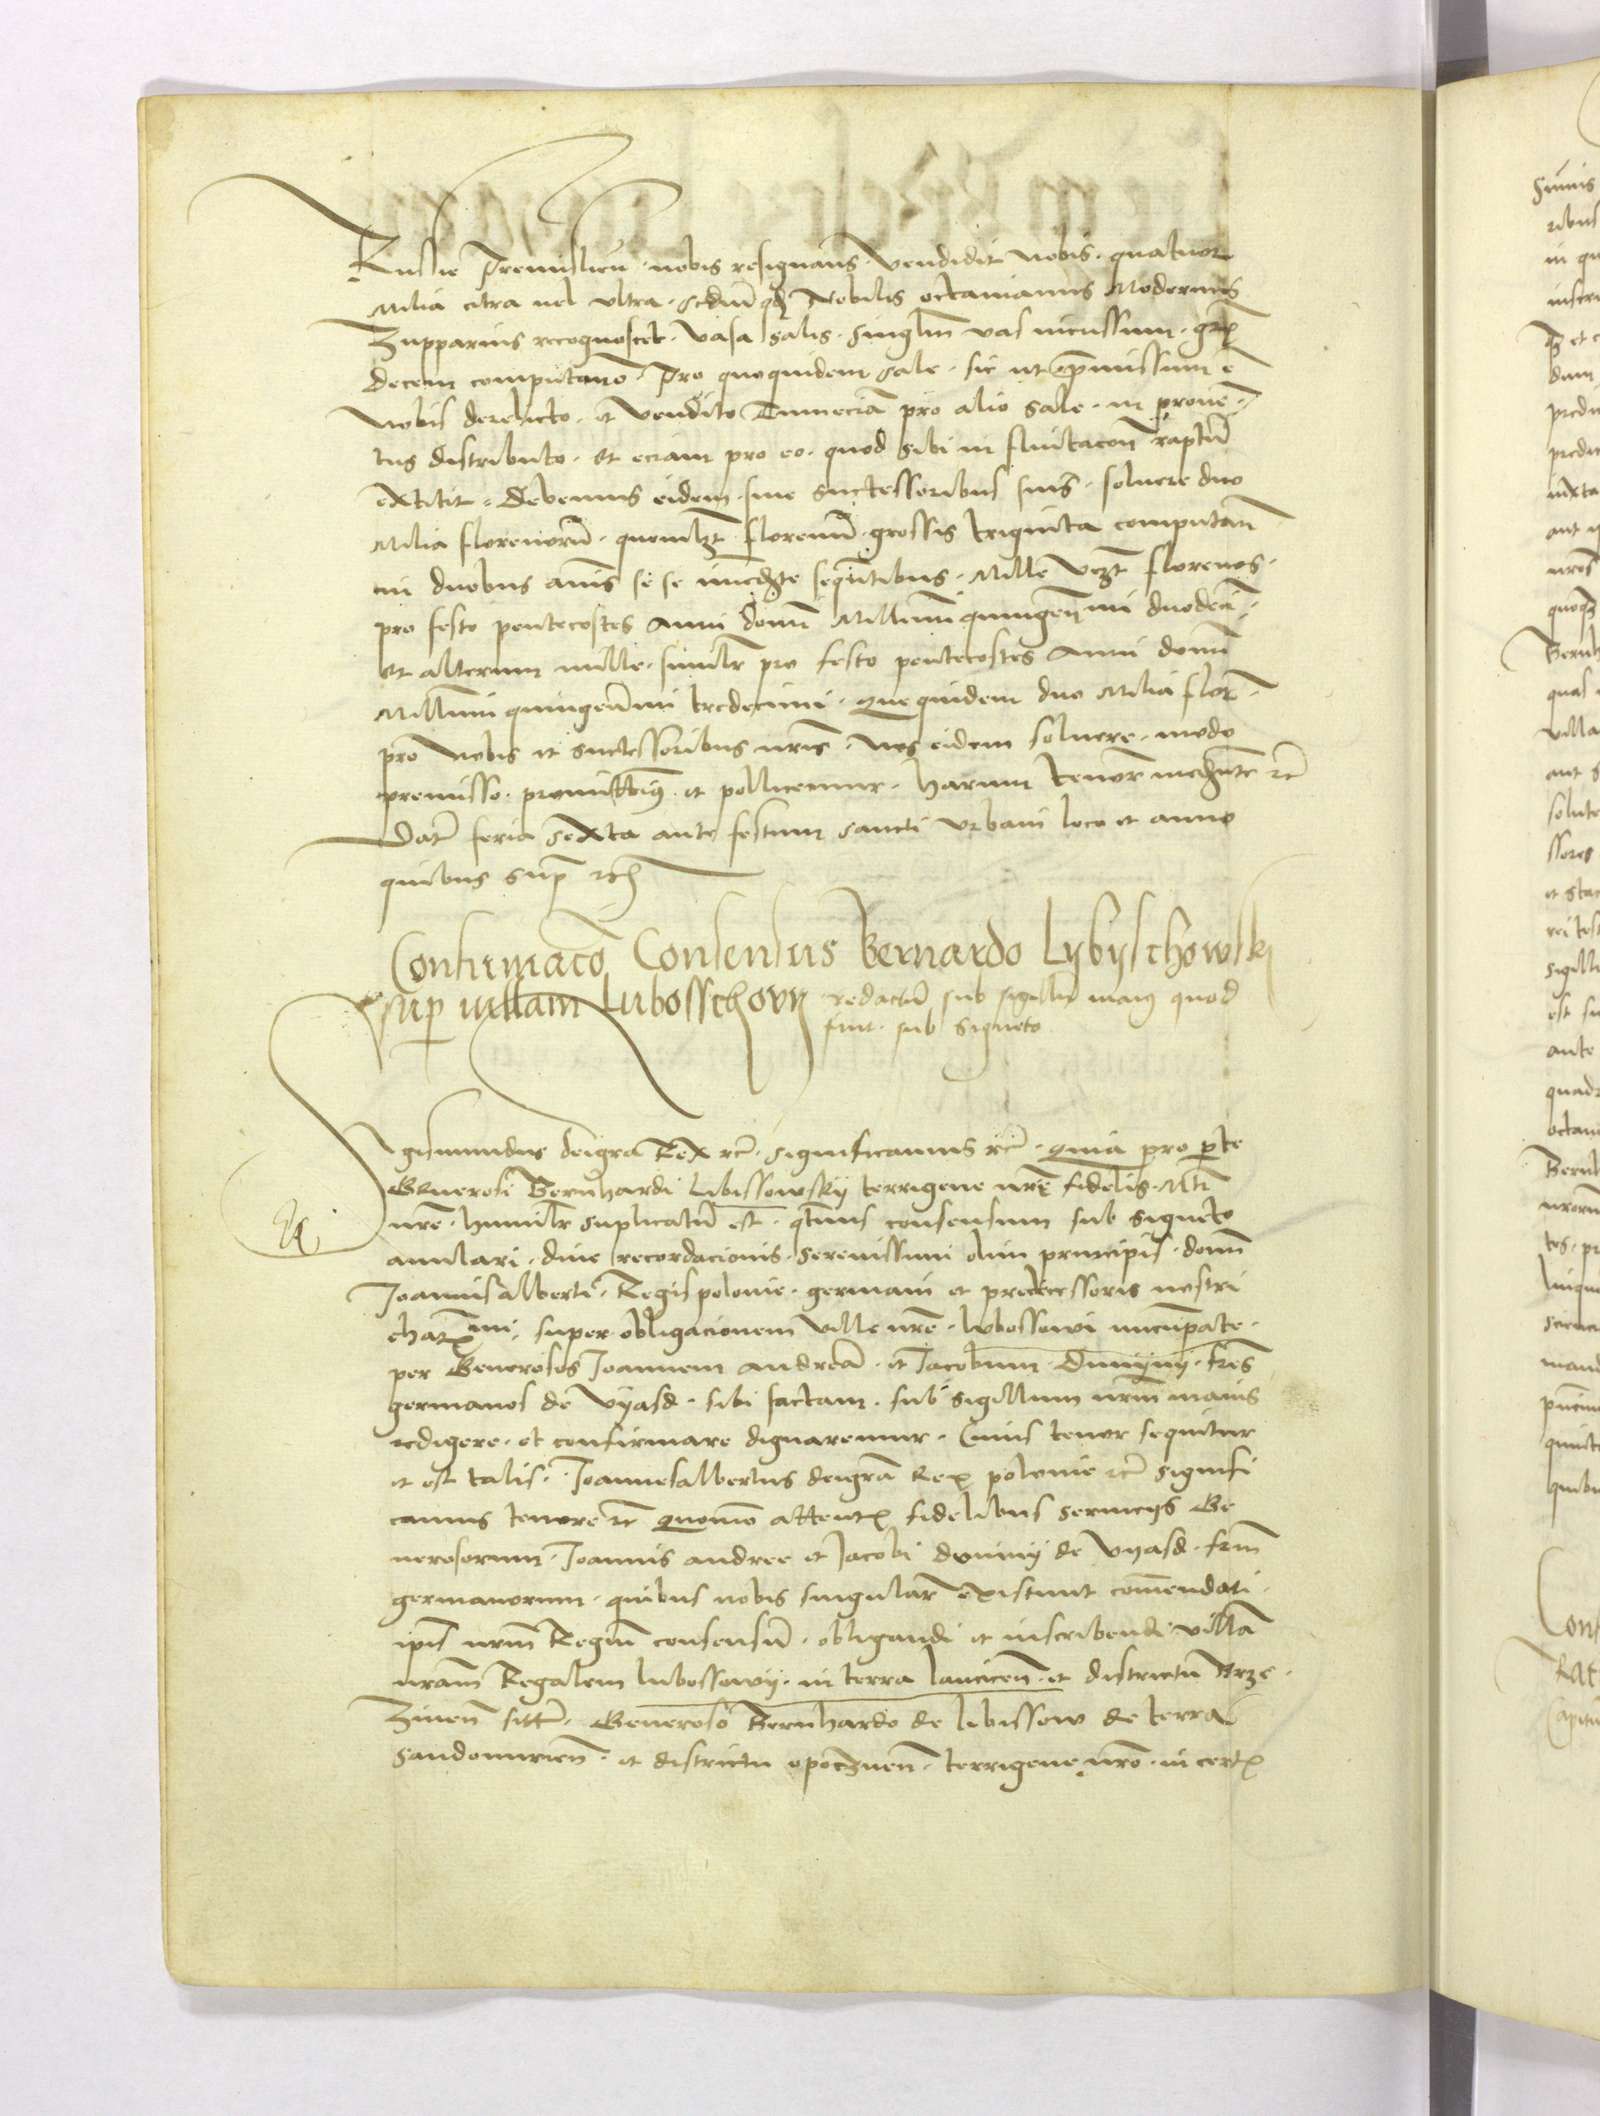 Russie Premislien̄ · nobis resignans · vendidit nobis · quatuor
Milia citra vel ultra · scdm̄ qd̄ Nobilis octavianus Modernus
Zupparius recognoscet · vasa salis · singlm̄ vas incussum · gr̄x
decem computan̄o · Pro quoquidem sale · sic ut p̄missum ē
nobis derelicto · et vendito Tum eciā pro alio sale · in proven̄
tus distributo · et eciam pro eo · quod sibi in fluitacōn raptū
extitit · Debemus eidem · sive successoribus suis · soluere duo
Milia florenorū · quemlꝫt florenū · grossis triginta computan̄
in duobus annis se se im̄edꝫte seqn̄tibus · Mille vcꝫt florenos ·
pro festo pentecostes anni domī Millīmi quingen̄mi duodecī
et alterum mille · similr̄ pro festo pentecostes anni domī
Millīmi quingen̄mi tredecimi · Quequidem duo Milia flor̄ ·
pro nobis et successoribus nr̄is · nos eidem soluere · modo
premisso · promittimꝰ et pollicemur · harum tenor̄ mediante rc̄
Dat̄ feria sexta ante festum sancti Urbani loco et anno
quibus supr̄ rc̄
Confirmacō Consensus Bernardo Lybyschowski
sup villam Lubosschovy redactū sub sigillū maiꝰ quod
fuit · sub signeto
Sigismundus dei gra Rex rc̄ · significamus rc̄ · Quia pro p̄te
Generosi Bernhardi Libissowskij terrigene nrē fidelis · Mti
nrē · humilr̄ suplicatū est · qtn̄us consensum sub signeto
anulari · dive recordacionis · serenissimi olim principis · domī
Joannisalberti · Regis polonie · germani et predecessoris nostri
char̄xmi · super obligacionem ville nrē · lubossowi nuncupate ·
per Generosos Joannem andreā · et Jacobum · Duninij · frēs
germanos de Vyasd · sibi factam · sub sigillum nrm̄ maius
redigere · et confirmare dignaremur · Cuius tenor sequitur
et est talis · Joannesalbertus dei grā Rex polonie rc̄ signifi
camus tenore rc̄ Quomō attentx fidelibus serviciis Ge
nerosorum · Joannis andree et Jacobi duninij de Vyasd · frm̄
germanorum · quibus nobis singular̄ existunt comendati ·
ipis nrm̄ Regiū consensū · obligandi et inscribendi villā
nram̄ Regalem lubossowij · in terra lancicien̄ · et districtu Brze ·
Zinen̄ sitā · Generoso Bernhardo de libissow de terra
sandomirien̄ · et districtu opocznen̄ · terrigene nrō · in certx